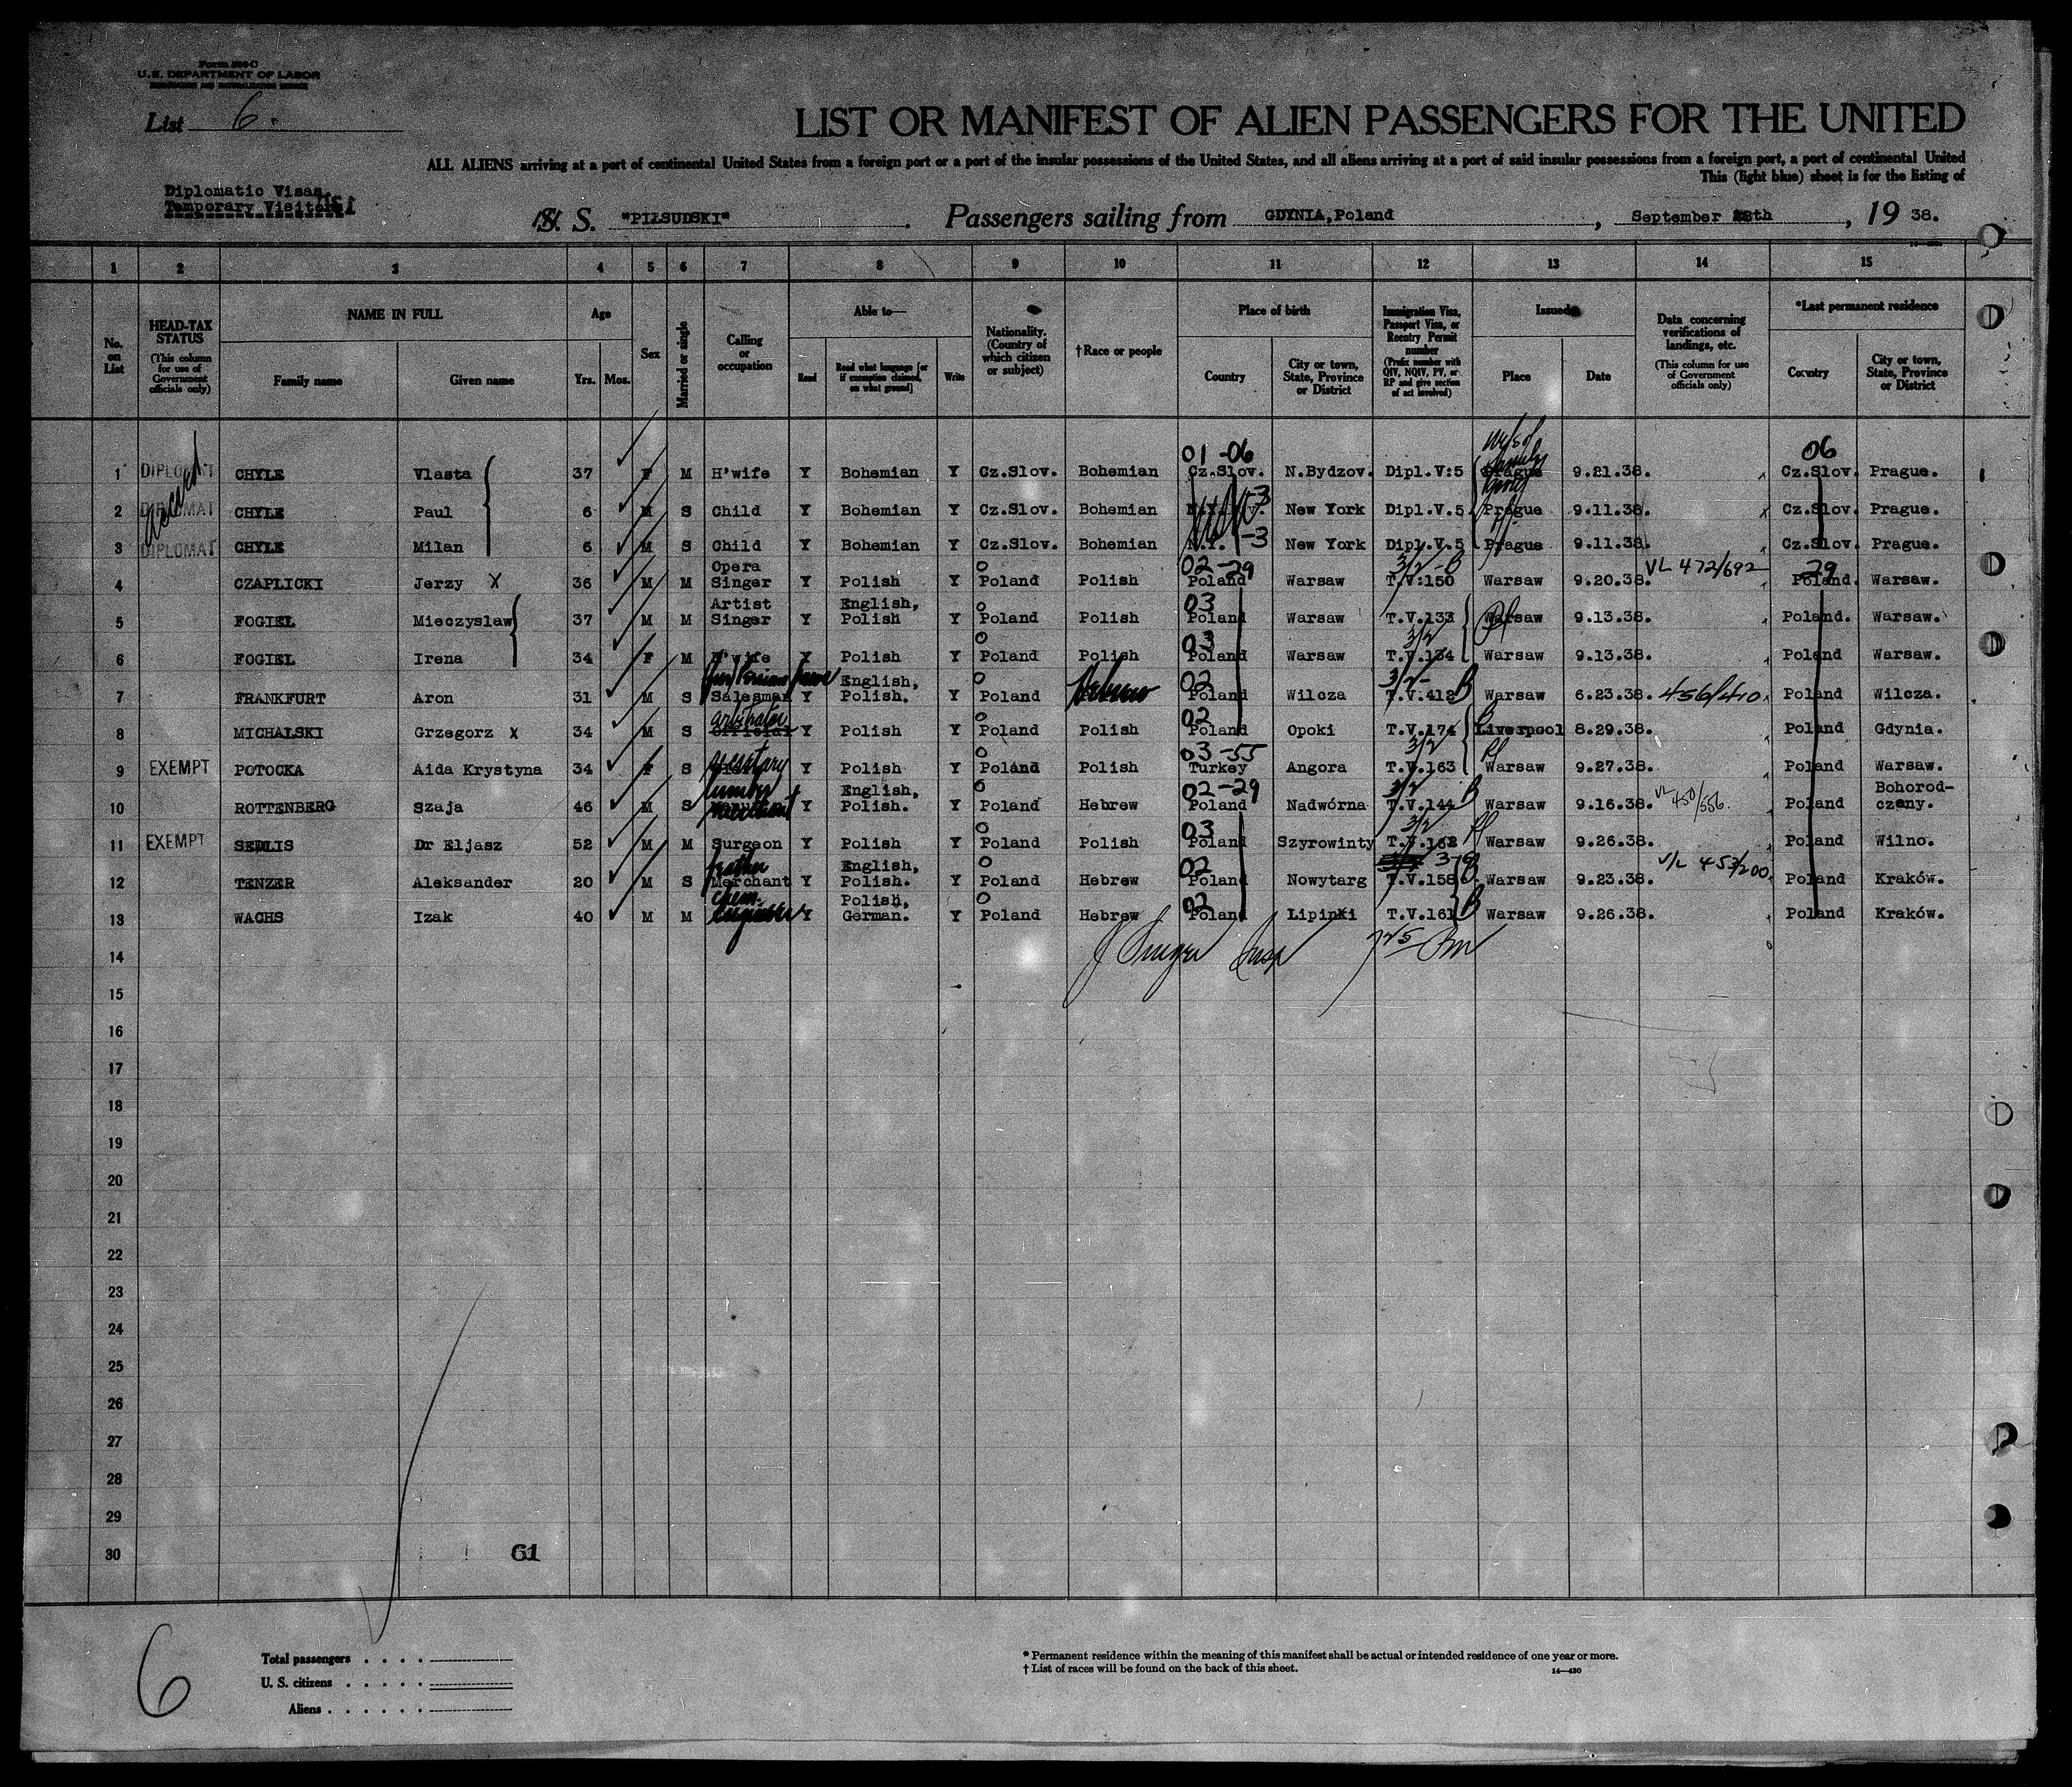 Form 500-C
U.S. DEPARTMENT OF LABOR
IMMIGRATION AND NATURALIZATION SERVICE
List 6.
LIST OR MANIFEST OF ALIEN PASSENGERS FOR THE UNITED
ALL ALIENS arriving at a port of continental United States from a foreign port or a port of the insular possessions of the United States, and all aliens arriving at a port of said insular possessions from a foreign port, a port of continental United
This (light blue) sheet is for the listing of
Diplomatic Visas.
Temporary Visitors
S. S. "PIŁSUDSKI" Passengers sailing from GDYNIA, Poland, September th, 19 38.
1 2 3 4 5 6 7 8 9 10 11 12 13 14 15
No. on List
HEAD-TAX STATUS (This column for use of Government officials only)
NAME IN FULL
Family name Given name
Age
Yrs. Mos.
Sex
Married or single
Calling or occupation
Able to—
Read Read what language [or if exemption claimed, on what ground] Write
Nationality. (Country of which citizen or subject)
†Race or people
Place of birth
Country City or town, State, Province or District
Immigration Visa, Passport Visa, or Reentry Permit number (Prefix number with QIV, NQIV, PV, or RP and give section of act involved)
Issued
Place Date
Data concerning verifications of landings, etc. (This column for use of Government officials only)
*Last permanent residence
Country City or town, State, Province or District
01-06 06
1 DIPLOMAT CHYLE Vlasta 37 F M H'wife Y Bohemian Y Cz.Slov. Bohemian Cz.Slov. N.Bydzov. Dipl.V:5 Prague 9.21.38. Cz.Slov. Prague.
2 DIPLOMAT CHYLE Paul 6 M S Child Y Bohemian Y Cz.Slov. Bohemian New York Dipl.V.5 Prague 9.11.38. Cz.Slov. Prague.
3 DIPLOMAT CHYLE Milan 6 M S Child Y Bohemian Y Cz.Slov. Bohemian N.Y. -3 New York Dipl.V.5 Prague 9.11.38. Cz.Slov. Prague.
Opera 0 02-29 3/2-B VL 472/692 29
4 CZAPLICKI Jerzy X 36 M M Singer Y Polish Y Poland Polish Poland Warsaw T.V:150 Warsaw 9.20.38. Poland. Warsaw.
Artist English, 0 03
5 FOGIEL Mieczyslaw 37 M M Singer Y Polish Y Poland Polish Poland Warsaw T.V.133 Warsaw 9.13.38. Poland. Warsaw.
0 03 3/2
6 FOGIEL Irena 34 F M H'wife Y Polish Y Poland Polish Poland Warsaw T.V.134 Warsaw 9.13.38. Poland Warsaw.
English, 0 02 3/2-
7 FRANKFURT Aron 31 M S Salesman Y Polish. Y Poland Hebrew Poland Wilcza T.V.412 B Warsaw 6.23.38. 456/440 Poland Wilcza.
0 02
8 MICHALSKI Grzegorz X 34 M S Official Y Polish Y Poland Polish Poland Opoki T.V.174 Liverpool 8.29.38. Poland Gdynia.
secretary 0 03-55 3/2
9 EXEMPT POTOCKA Aida Krystyna 34 F S Y Polish Y Poland Polish Turkey Angora T.V.163 Warsaw 9.27.38. Poland Warsaw.
lumber English, 0 02-29 3/2 B VL 450/556. Bohorod-
10 ROTTENBERG Szaja 46 M S merchant Y Polish. Y Poland Hebrew Poland Nadwórna T.V.144 Warsaw 9.16.38. Poland czany.
0 03 3/2
11 EXEMPT SEDLIS Dr Eljasz 52 M M Surgeon Y Polish Y Poland Polish Poland Szyrowinty T.V.162 Warsaw 9.26.38. Poland Wilno.
English, 0 02 V/L 453/200
12 TENZER Aleksander 20 M S Merchant Y Polish. Y Poland Hebrew Poland Nowytarg T.V.158 Warsaw 9.23.38. Poland Kraków.
chem. Polish, 0 02
13 WACHS Izak 40 M M engineer Y German. Y Poland Hebrew Poland Lipinki T.V.161 B Warsaw 9.26.38. Poland Kraków.
14
15
16
17
18
19
20
21
22
23
24
25
26
27
28
29
30
61
6
Total passengers
U. S. citizens
Aliens
* Permanent residence within the meaning of this manifest shall be actual or intended residence of one year or more.
† List of races will be found on the back of this sheet. 14—430